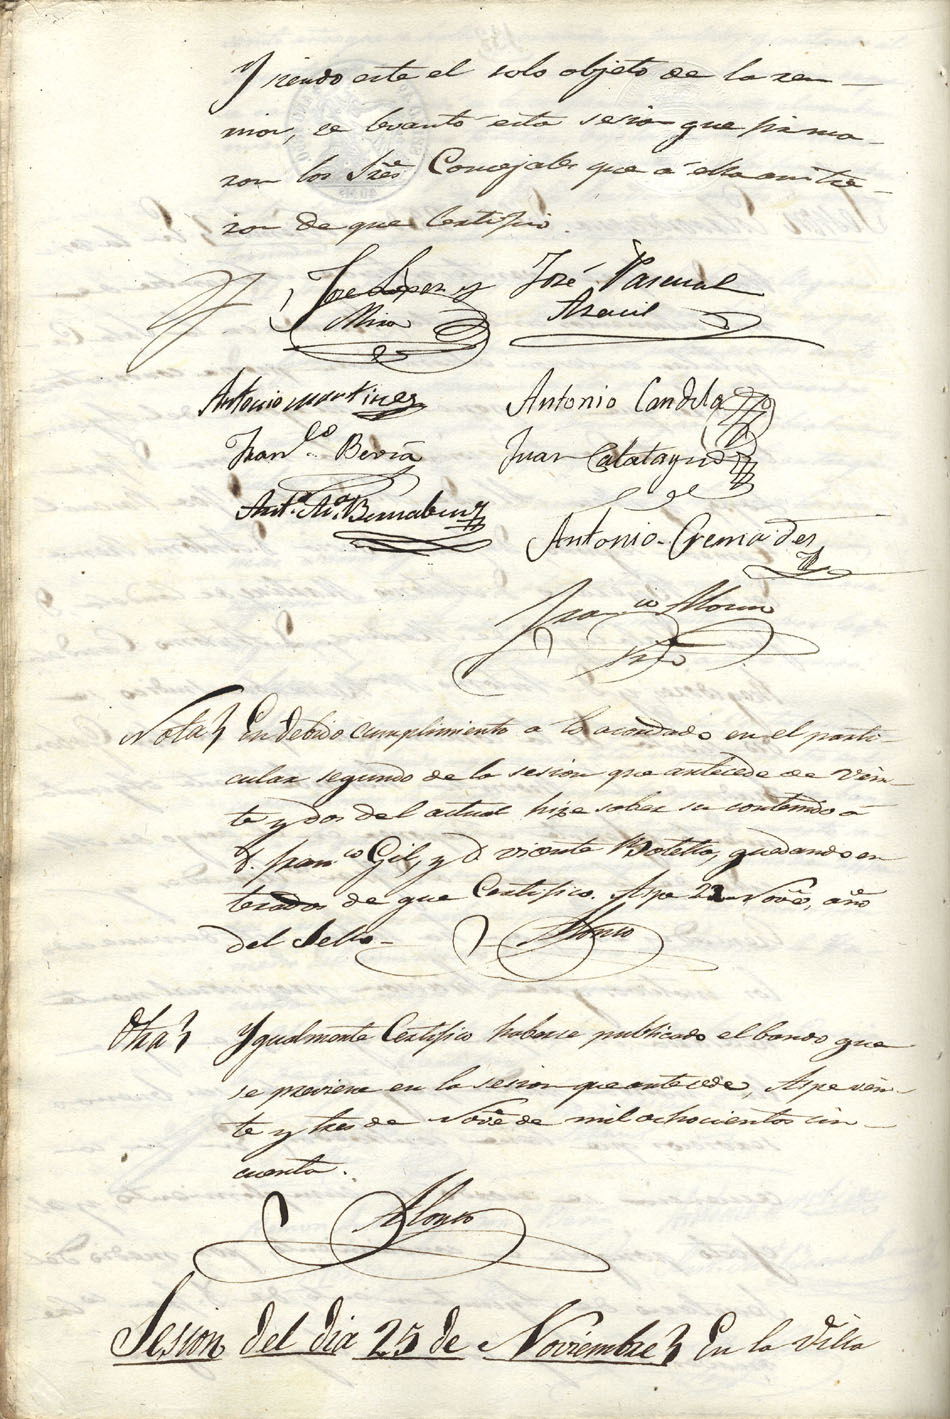 Y siendo este el solo objeto de la reu-
nion, se levantó esta sesion que firma-
ron los Sres Concejales que á ella asistie-
ron de que Certifico.
Jose Lopez y José Pascual
Mira Aznar
Antonio Martinez Antonio Candela
Franco Beviá Juan Calatayud
Anto Ma Bernabeu
Antonio Cremades
Franco Alonso
Srio
Nota} En debido cumplimiento a lo acordado en el parti-
cular segundo de la sesion que antecede de vein-
te y dos del actual hize saber su contenido á
D. Franco Gil, y D. Vicente Botella, quedando en
terados de que Certifico. Aspe 22 Nove, año
del Sello-
Alonso
Otra} Ygualmente Certifico haberse publicado el bando que
se previene en la sesion que antecede, Aspe vein-
te y tres de Nove de mil ochocientos cin-
cuenta.
Alonso
Sesion del dia 25 de Noviembre} En la Villa